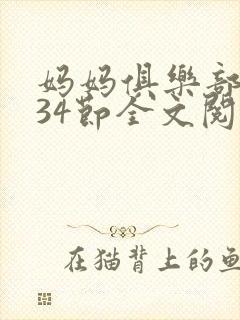 妈妈俱樂部
34節全文閱
在猫背上的鱼